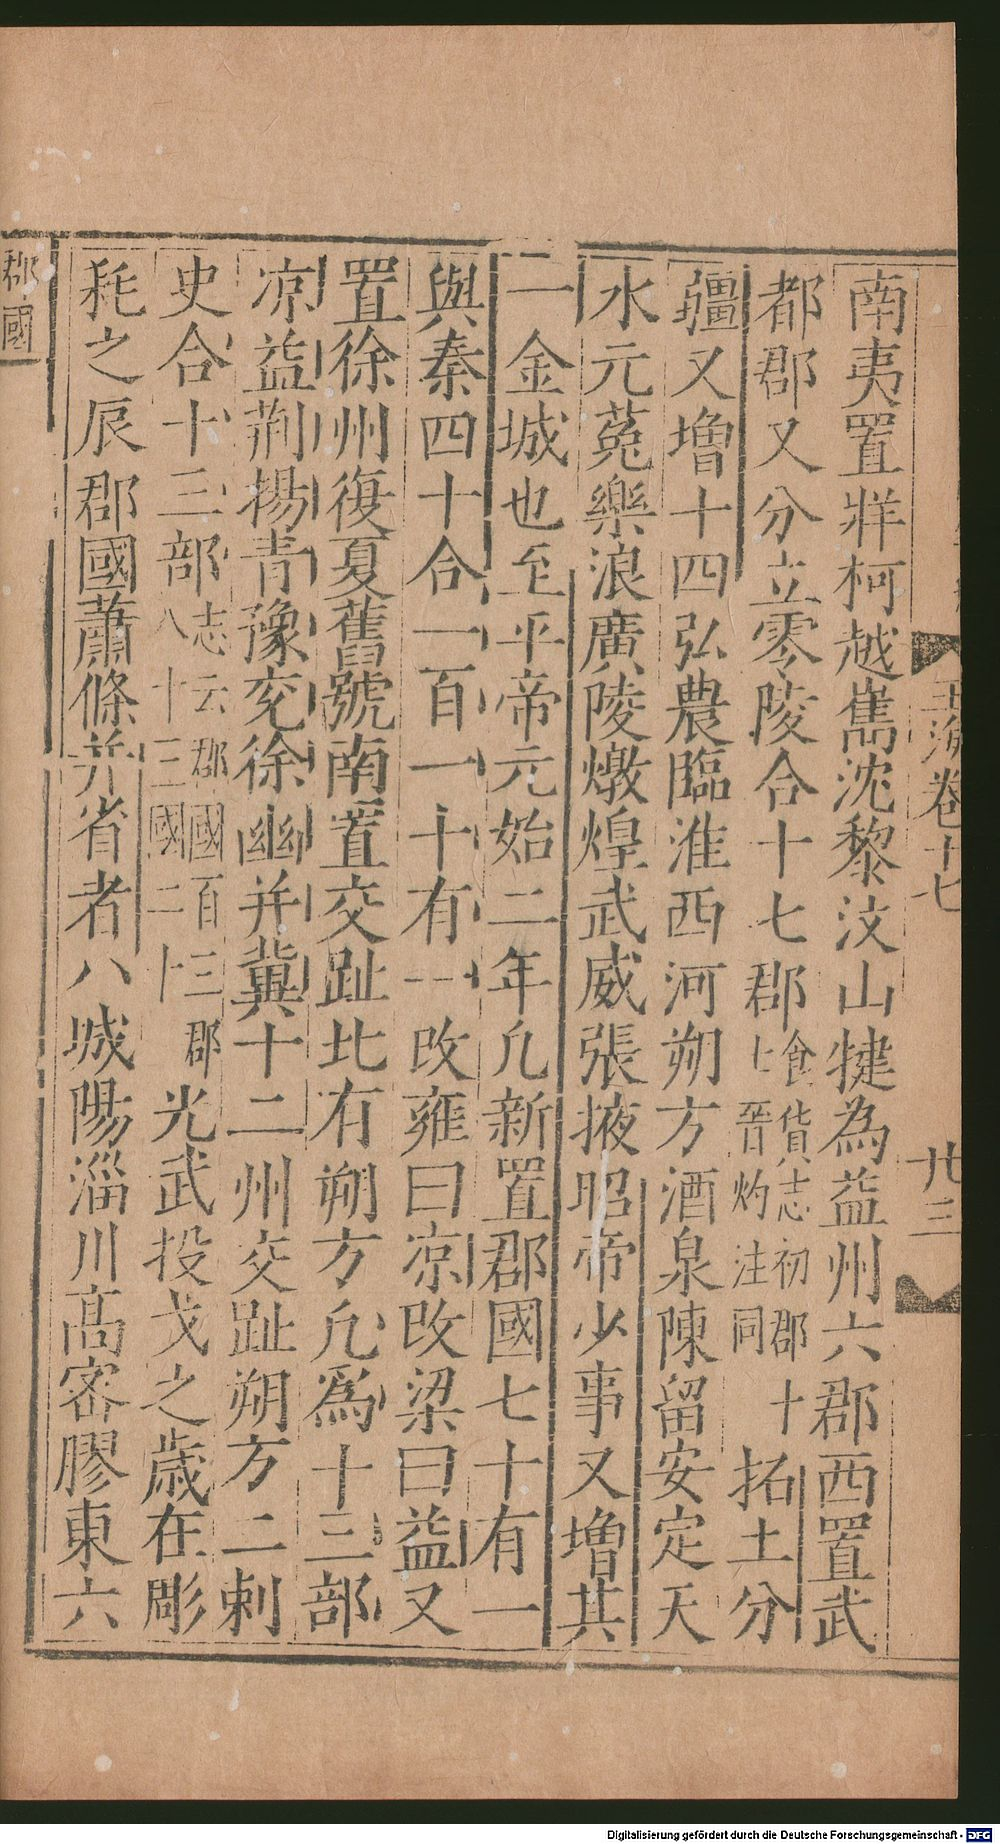 玉海卷十七
廿三
南夷置牂柯越巂沈黎汶山犍為益州六郡西置武
都郡又分立零陵合十七郡食貨志初郡十七晉灼注同拓土分
疆又增十四弘農臨淮西河朔方酒泉陳留安定天
水元菟樂浪廣陵燉煌武威張掖昭帝少事又增其
一金城也至平帝元始二年凡新置郡國七十有一
與秦四十合一百一十有一改雍曰凉改梁曰益又
置徐州復夏舊號南置交趾北有朔方凡爲十三部
凉益荆揚青豫兖徐幽并冀十二州交趾朔方二刺
史合十三部志云郡國百三郡八十三國二十光武投戈之歳在彫
秏之辰郡國蕭條并省者八城陽淄川高密膠東六
郡國
Digitalisierung gefördert durch die Deutsche Forschungsgemeinschaft - DFG